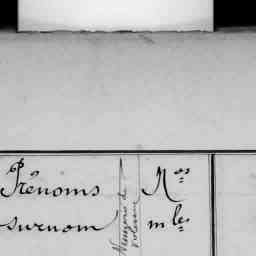 Prénoms
surnom
Numéro de
volume
Nos
mles